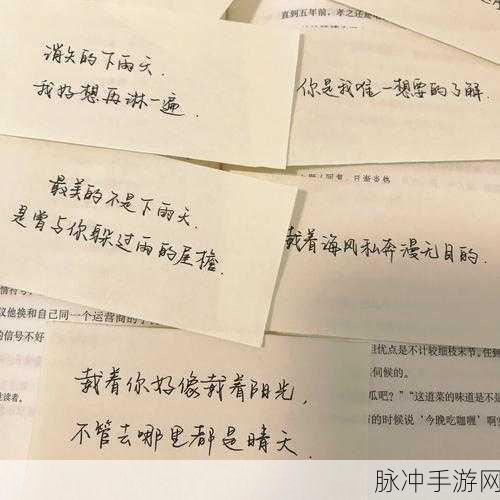 直到五年前，孝之还是
消失的下雨天.
我好想再淋一遍.
你是我唯一想要的了解.
最美的不是下雨天.
是曾与你躲过雨的屋檐.
载着海风私奔漫无目的.
议他换和自己同一个运营商的手
的信号不好
读着。
但优点是不计较细枝末节。
伺候的。
瓜吧？”“这道菜的味道是不是
的时候说‘今晚吃咖喱’
载着你好像载着阳光,
不管去哪里都是晴天.
脉冲手游网